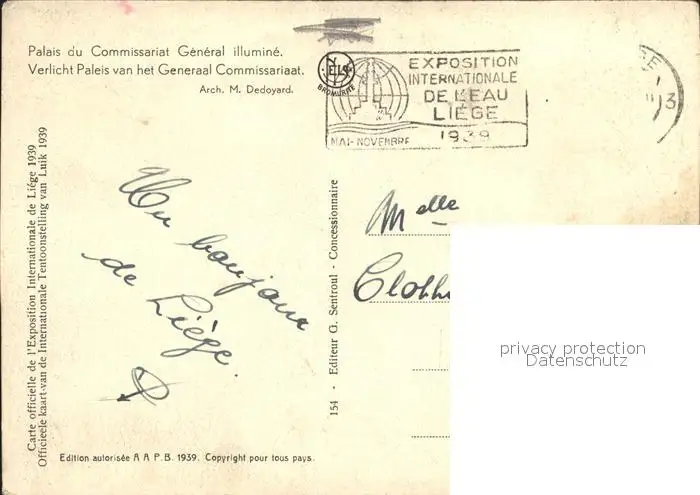 Palais du Commissariat Général illuminé.
Verlicht Paleis van het Generaal Commissariaat.
Arch. M. Dedoyard.
EXPOSITION
INTERNATIONALE
DE L'EAU
LIÈGE
1939
MAI-NOVEMBRE
BROMURITE
Carte officielle de l'Exposition Internationale de Liége 1939
Officieele kaart-van de Internationale Tentoonstelling van Luik 1939
Un bonjour
de Liége.
154 - Editeur G. Sentroul - Concessionnaire
Melle
privacy protection
Datenschutz
Edition autorisée A A P.B. 1939. Copyright pour tous pays.